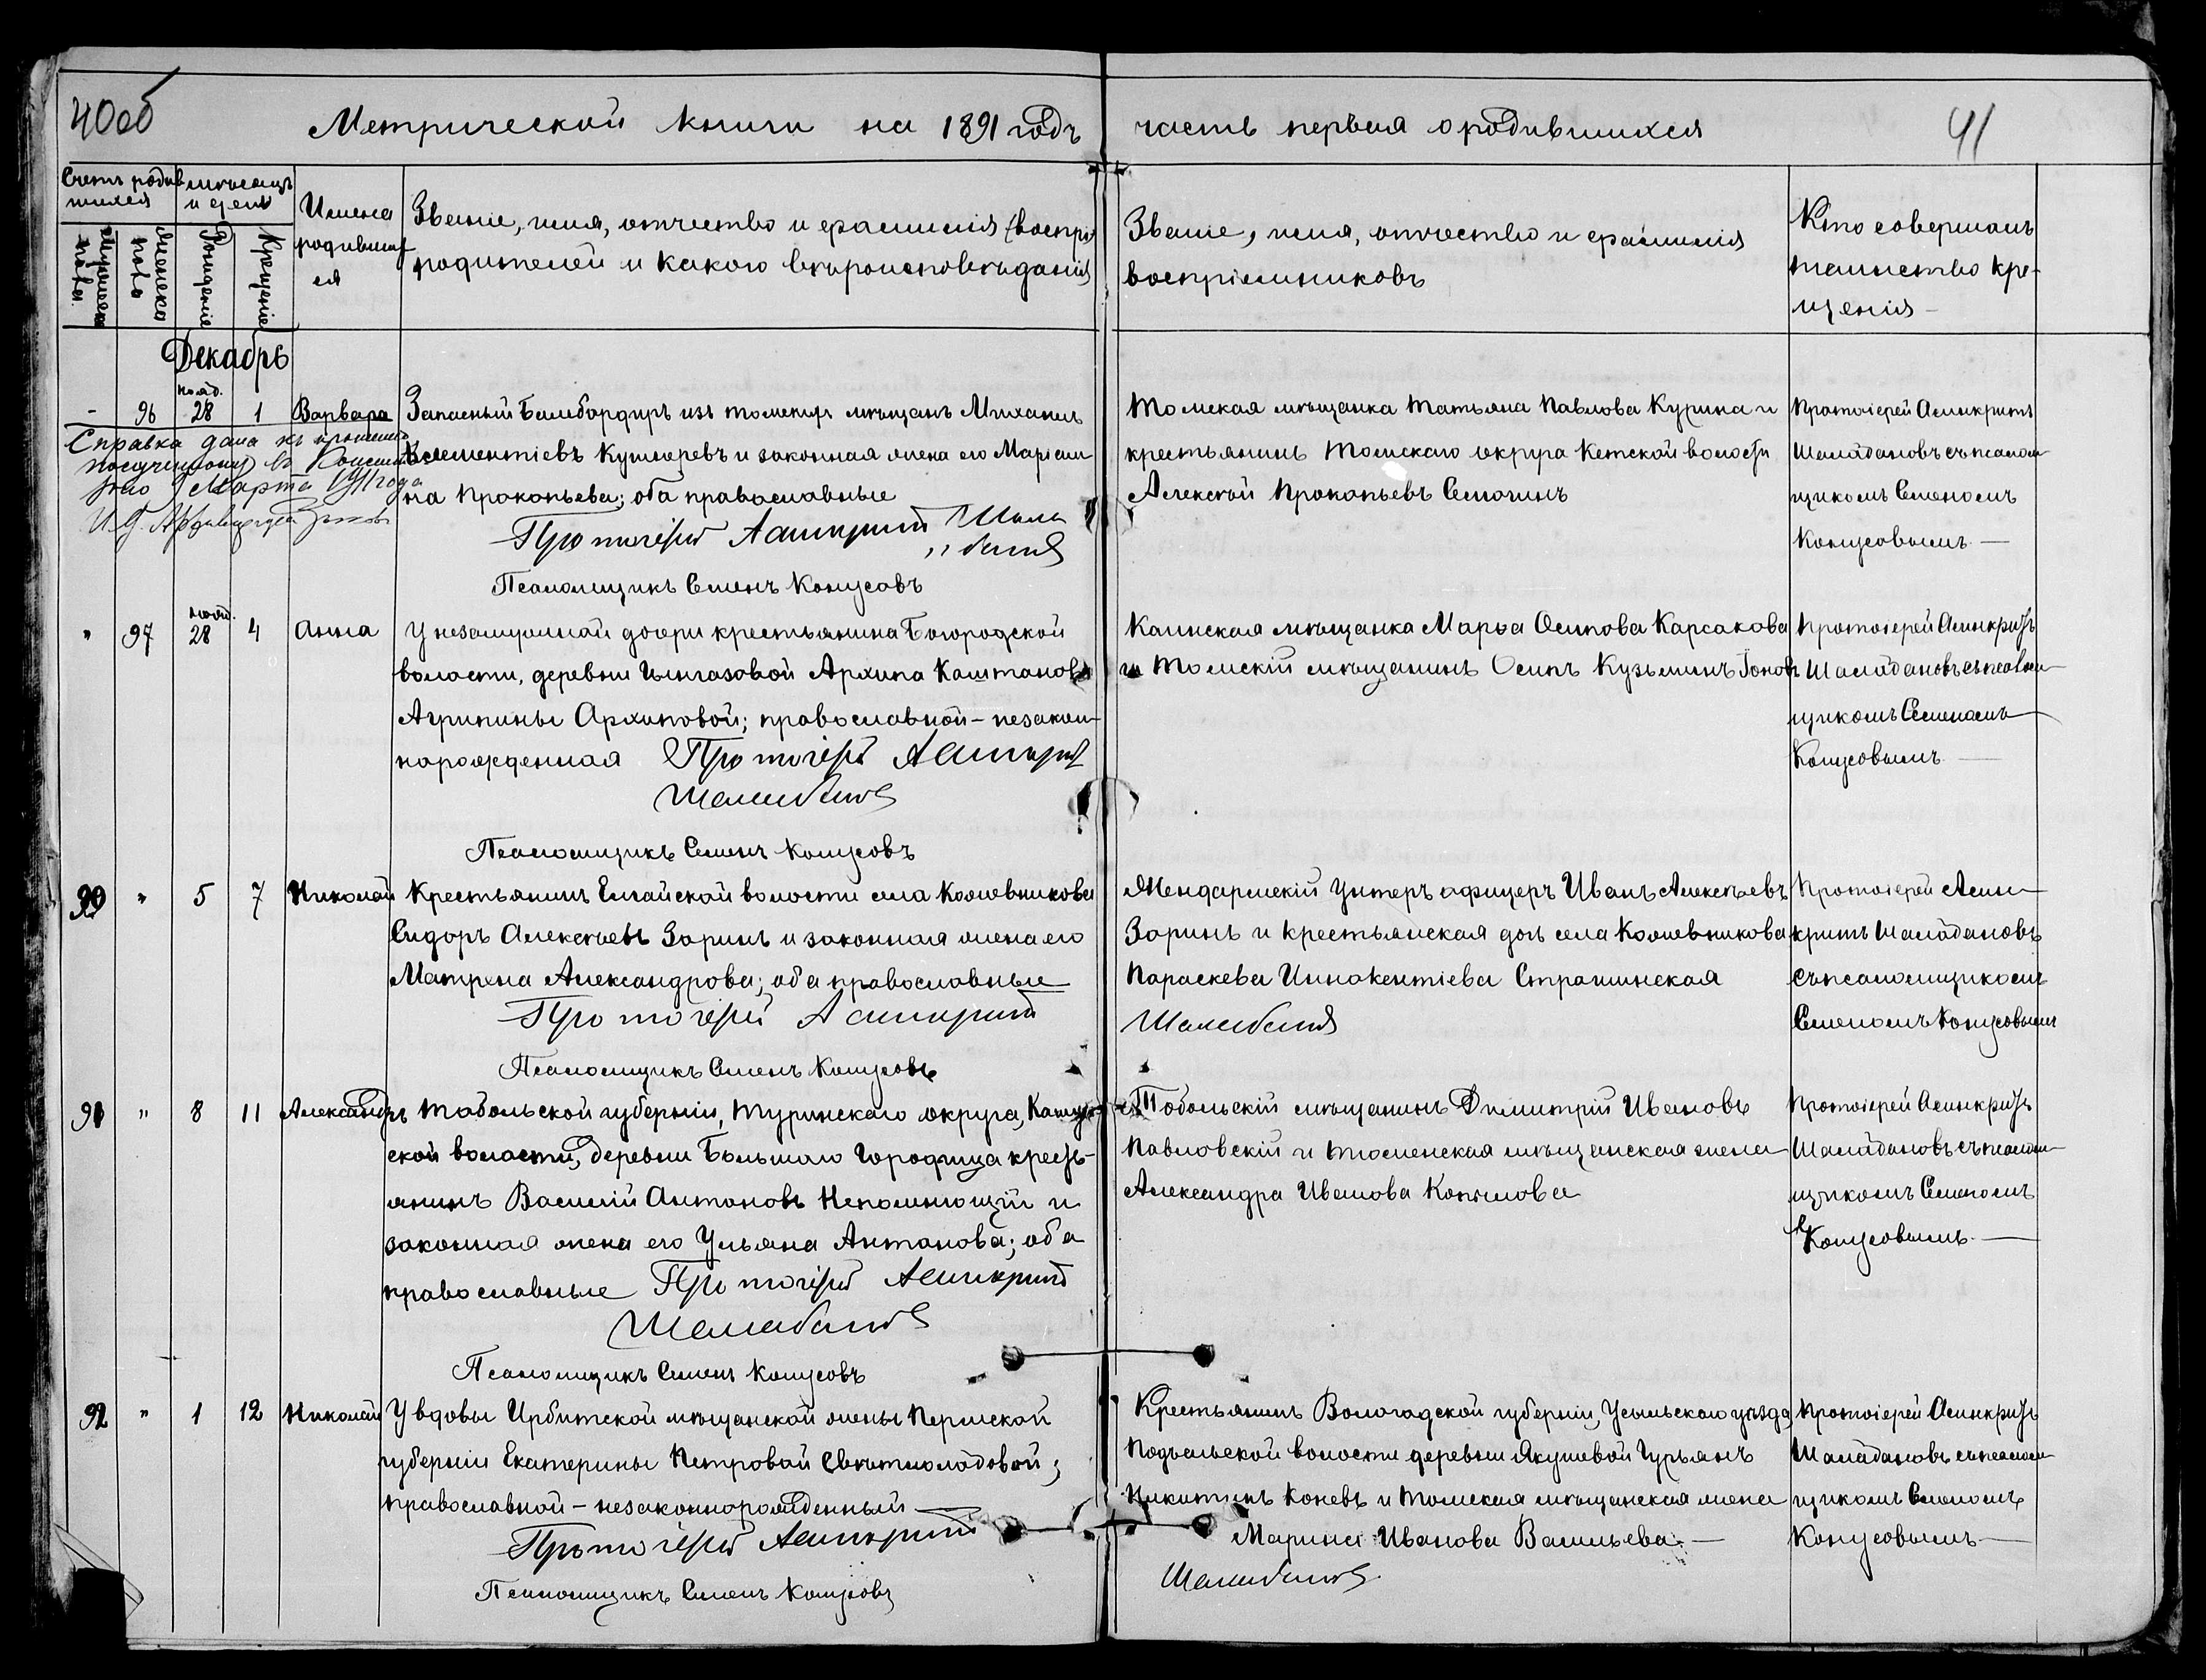 40 об
Метрической книги на 1891 годъ
часть первая о родившихся
41
Счетъ родив
шихся
мѣсяцъ
и день
мужеска
пола
женска
пола
Рожденіе
Крещеніе
Имена
родивших
ся
Званіе, имя, отчество и фамилія
родителей и какого вѣроисповѣданія
Званіе, имя, отчество и фамилія
воспріемниковъ
Кто совершалъ
таинство кре-
щенія
Декабрь
- 96 нояб. 28 1 Варвара
Запасный Бамбордиръ изъ томскихъ мѣщанъ Михаилъ
Клементіевъ Кушнревъ и законная жена его Маріам
на Прокопьева; оба православные
Протоіерей Асинкритъ Шала
бановъ
Псаломщикъ Семенъ Конусовъ
Справка дана къ прошенію
поступившему въ
9 Марта 1911 года
И. д. Архиваріуса
Томская мѣщанка Татьяна Павлова Курина и
крестьянинъ Томскаго округа Кетской волости
Алексѣй Прокопьевъ Семочинъ
Протоіерей Асинкритъ
Шалабановъ съ псалом
щикомъ Семеномъ
Конусовымъ —
" 97 нояб. 28 4 Анна
У незамужней дочери крестьянина Богородской
волости, деревни Цынгазовой Архипа Каштанова
Агрипины Архиповой; православной - незакон-
норожденная Протоіерей Асинкрит
Шалабановъ
Псаломщикъ Семенъ Конусовъ
Каинская мѣщанка Марья Осипова Карсакова
и Томскій мѣщанинъ Осипъ Кузьминъ Іоновъ
Протоіерей Асинкритъ
Шалабановъ съ псалом
щикомъ Семеномъ
Конусовымъ —
90 " 5 7 Николай
Крестьянинъ Елгайской волости села Кожевникова
Сидоръ Алексѣевъ Заринъ и законная жена его
Матрена Александрова; оба православные
Протоіерей Асинкритъ
Псаломщикъ Семенъ Конусовъ
Жендармскій унтеръ офицеръ Иванъ Алексѣевъ
Заринъ и крестьянская дочь села Кожевникова
Параскева Иннокентіева Страшинская
Шалабановъ
Протоіерей Асин
критъ Шалабановъ
съ псаломщикомъ
Семеномъ Конусовымъ
91 " 8 11 Александръ
Тобольской губерніи, Туринскаго округа,
ской волости, деревни Большаго Городища кресть-
янинъ Василій Антоновъ Непомнющій и
законная жена его Ульяна Антонова; оба
православные Протоіерей Асинкритъ
Шалабановъ
Псаломщикъ Семенъ Конусовъ
Тобольскій мѣщанинъ Димитрій Ивановъ
Павловскій и тюменская мѣщанская жена
Александра Иванова Копылова
Протоіерей Асинкритъ
Шалабановъ съ псалом
щикомъ Семеномъ
Конусовымъ —
92 " 1 12 Николай
У вдовы Ирбитской мѣщанской жены Пермской
губерніи Екатерины Петровой Свѣтлолобовой;
православной - незаконнорожденный
Протоіерей Асинкритъ
Псаломщикъ Семенъ Конусовъ
Крестьянинъ Вологодской губерніи, Усольскаго уѣзда,
Подъельской волости деревни Якушевой Гурьянъ
Никитинъ Коневъ и томская мѣщанская жена
Марина Иванова Васильева. —
Шалабановъ
Протоіерей Асинкритъ
Шалабановъ съ псалом
щикомъ Семеномъ
Конусовымъ —